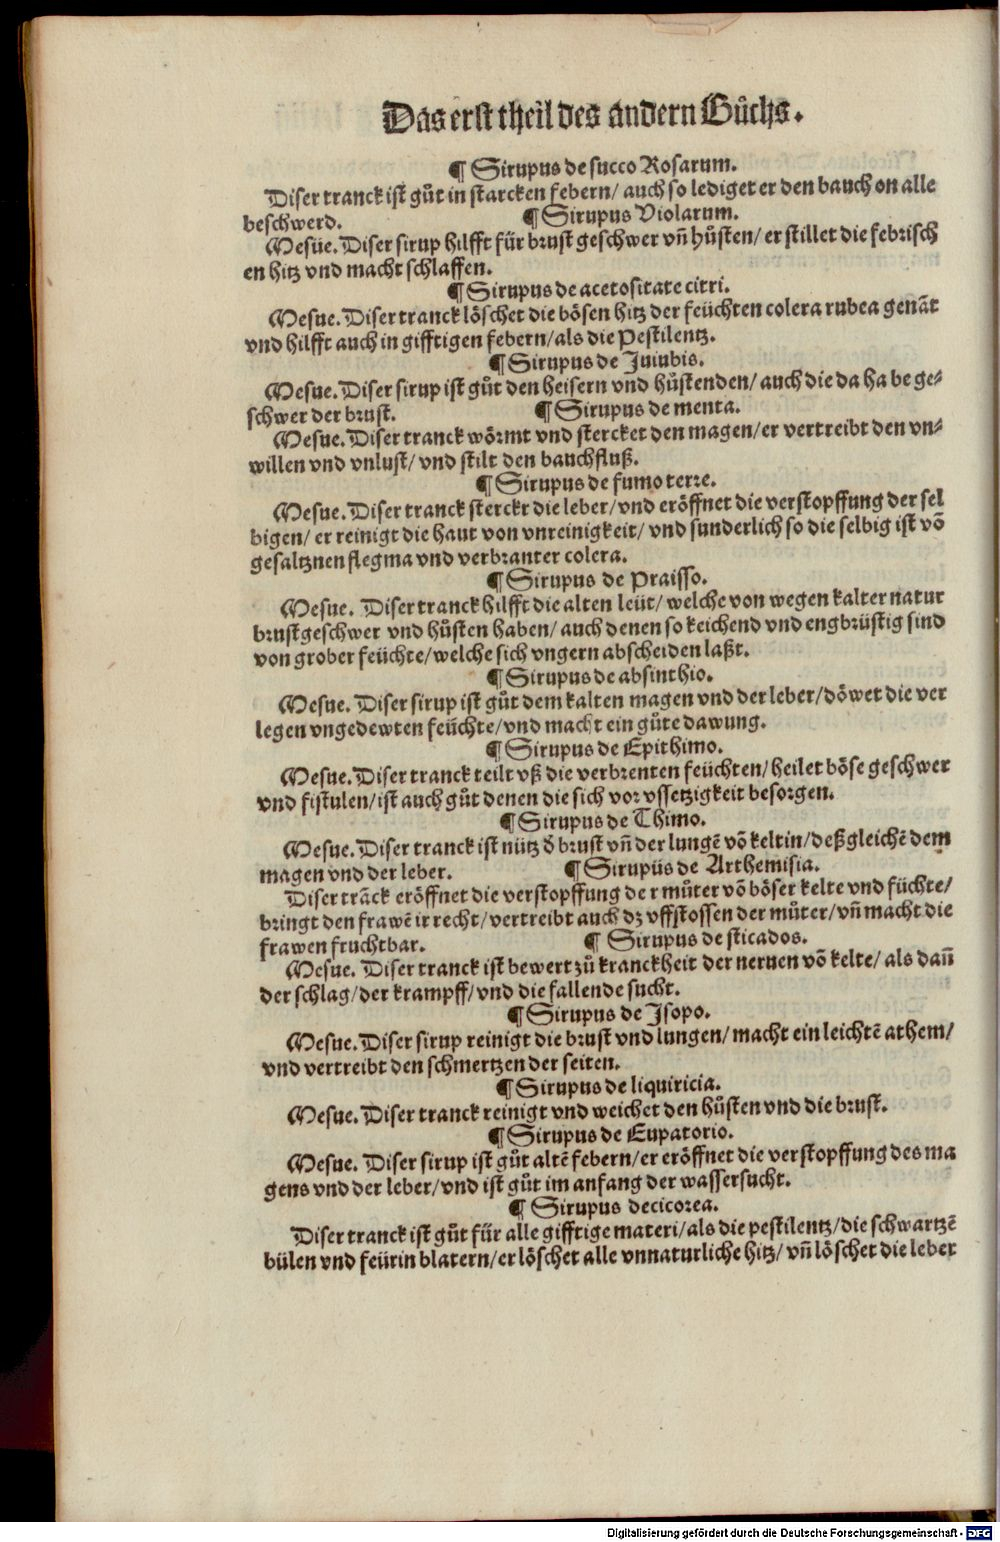 Das erst theil des andern Bůchs.
¶ Sirupus de succo Rosarum.
Diser tranck ist gůt in starcken febern/ auch so lediget er den bauch on alle
beschwerd. ¶ Sirupus Violarum.
Mesue. Diser sirup hilfft für brust geschwer vñ hůsten/ er stillet die febrisch
en hitz vnd macht schlaffen.
¶ Sirupus de acetositate citri.
Mesue. Diser tranck löschet die bösen hitz der feüchten colera rubea genãt
vnd hilfft auch in gifftigen febern/ als die Pestilentz.
¶ Sirupus de Juiubis.
Mesue. Diser sirup ist gůt den heisern vnd hůstenden/ auch die da ha be ge⸗
schwer der brust. ¶ Sirupus de menta.
Mesue. Diser tranck wörmt vnd stercket den magen/ er vertreibt den vn⸗
willen vnd vnlust/ vnd stilt den bauchfluß.
¶ Sirupus de fumo terre.
Mesue. Diser tranck sterckt die leber/ vnd eröffnet die verstopffung der sel
bigen/ er reinigt die haut von vnreinigkeit/ vnd sunderlich so die selbig ist võ
gesaltznen flegma vnd verbranter colera.
¶ Sirupus de Praisso.
Mesue. Diser tranck hilfft die alten leüt/ welche von wegen kalter natur
brustgeschwer vnd hůsten haben/ auch denen so keichend vnd engbrüstig sind
von grober feüchte/ welche sich vngern abscheiden laßt.
¶ Sirupus de absinthio.
Mesue. Diser sirup ist gůt dem kalten magen vnd der leber/ döwet die ver
legen vngedewten feüchte/ vnd macht ein gůte dawung.
¶ Sirupus de Epithimo.
Mesue. Diser tranck teilt vß die verbrenten feüchten/ heilet böse geschwer
vnd fistulen/ ist auch gůt denen die sich vor vssetzigkeit besorgen.
¶ Sirupus de Thimo.
Mesue. Diser tranck ist nütz d̄ brust vñ der lungẽ võ keltin/ deßgleichẽ dem
magen vnd der leber. ¶ Sirupüs de Arthemisia.
Diser trãck eröffnet die verstopffung de r můter võ böser kelte vnd füchte/
bringt den frawẽ ir recht/ vertreibt auch dz vffstossen der můter/ vñ macht die
frawen fruchtbar. ¶ Sirupus de sticados.
Mesue. Diser tranck ist bewert zů kranckheit der neruen võ kelte/ als dañ
der schlag/ der krampff/ vnd die fallende sucht.
¶ Sirupus de Jsopo.
Mesue. Diser sirup reinigt die brust vnd lungen/ macht ein leichtẽ athem/
vnd vertreibt den schmertzen der seiten.
¶ Sirupus de liquiricia.
Mesue. Diser tranck reinigt vnd weichet den hůsten vnd die brust.
¶ Sirupus de Eupatorio.
Mesue. Diser sirup ist gůt altẽ febern/ er eröffnet die verstopffung des ma
gens vnd der leber/ vnd ist gůt im anfang der wassersucht.
¶ Sirupus decicorea.
Diser tranck ist gůt für alle gifftige materi/ als die pestilentz/ die schwartzẽ
bülen vnd feürin blatern/ er löschet alle vnnaturliche hitz/ vñ löschet die leber
Digitalisierung gefördert durch die Deutsche Forschungsgemeinschaft - DFG